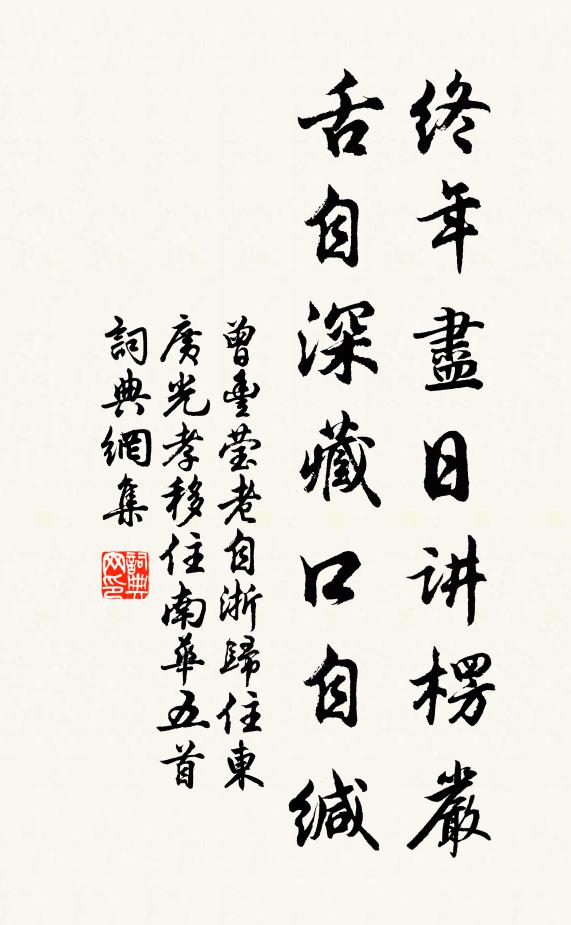 終年盡日讲楞嚴
舌自深藏口自緘
曾豐瑩老自浙歸住東
廣光孝移住南華五首
詞典網集
詞典网印